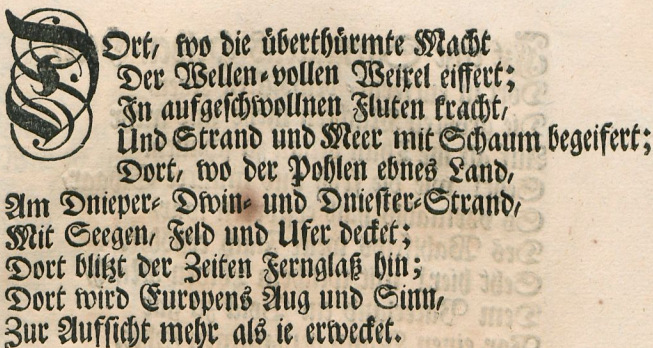 DOrt, wo die überthürmte Macht
Der Wellen-vollen Weixel eiffert;
In aufgeschwollnen Fluten kracht,
Und Strand und Meer mit Schaum begeifert;
Dort, wo der Pohlen ebnes Land,
Am Dnieper- Dwin- und Dniester-Strand,
Mit Seegen, Feld und Ufer decket;
Dort blitzt der Zeiten Fernglaß hin;
Dort wird Europens Aug und Sinn,
Zur Aufsicht mehr als ie erwecket.